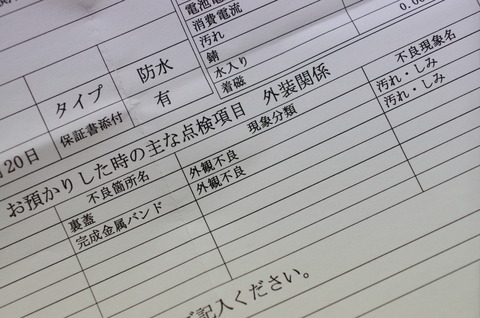 消費電流
汚れ
錆
水入り
着磁
0.00
タイプ 防水
保証書添付 有
20日
お預かりした時の主な点検項目 外装関係
不良箇所名 現象分類 不良現象名
裏蓋 外観不良 汚れ・しみ
完成金属バンド 外観不良 汚れ・しみ
ご記入ください。